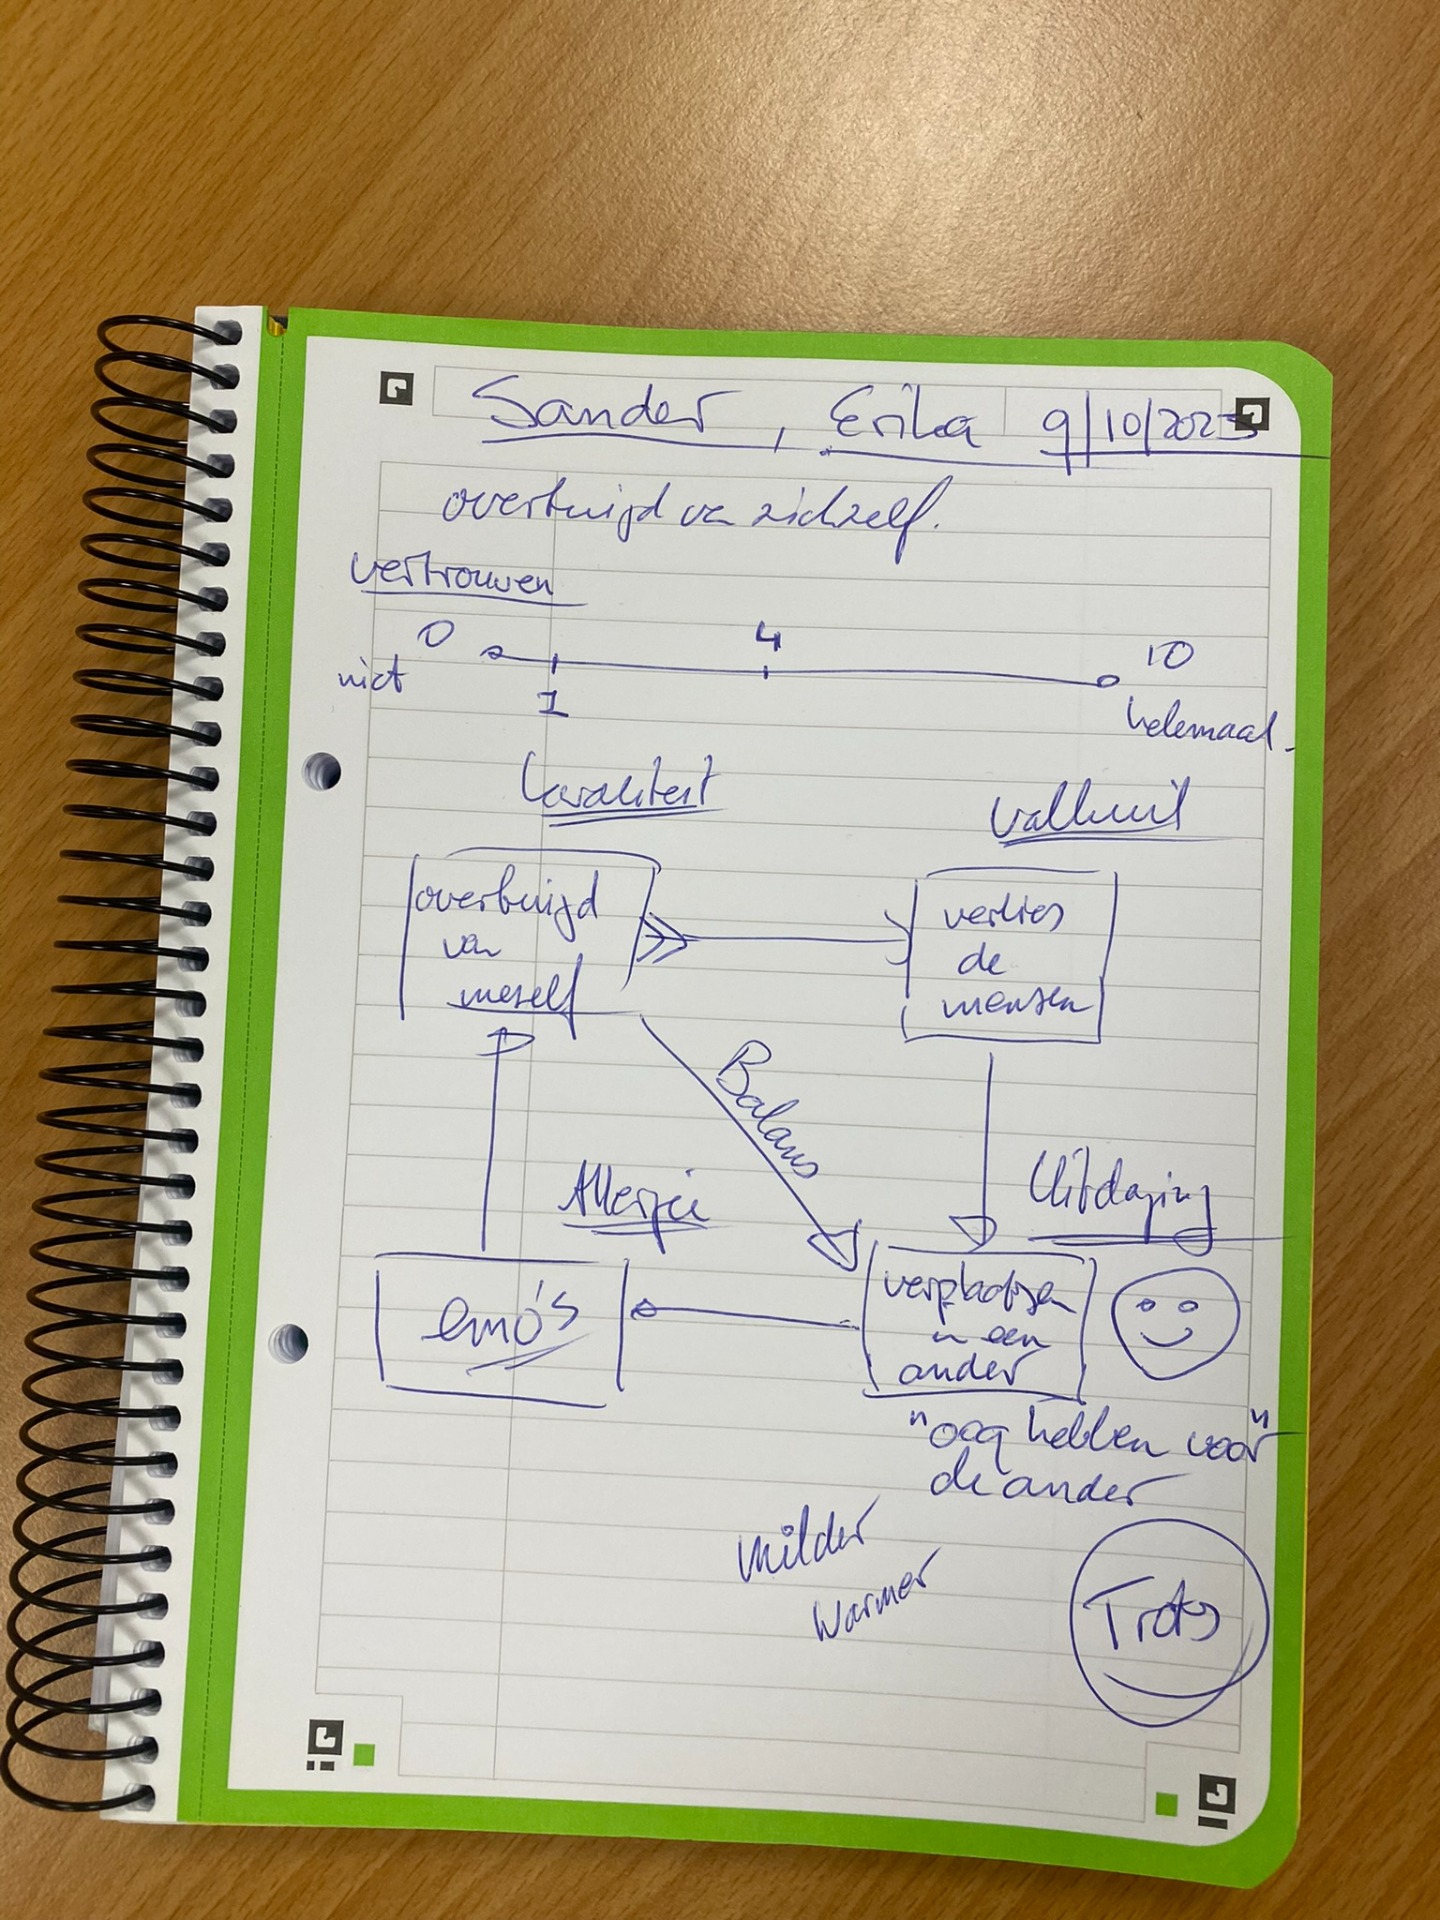 Sander, Erika 9/10/2023
overtuigd van zichzelf.
vertrouwen
0 4 10
niet 1 helemaal.
kwaliteit valkuil
overtuigd
van
mezelf
verlies
de
mensen
Balans
Allergie Uitdaging
emo's
verplaatsen
in een
ander
"oog hebben voor"
de ander
milder
warmer
Trots